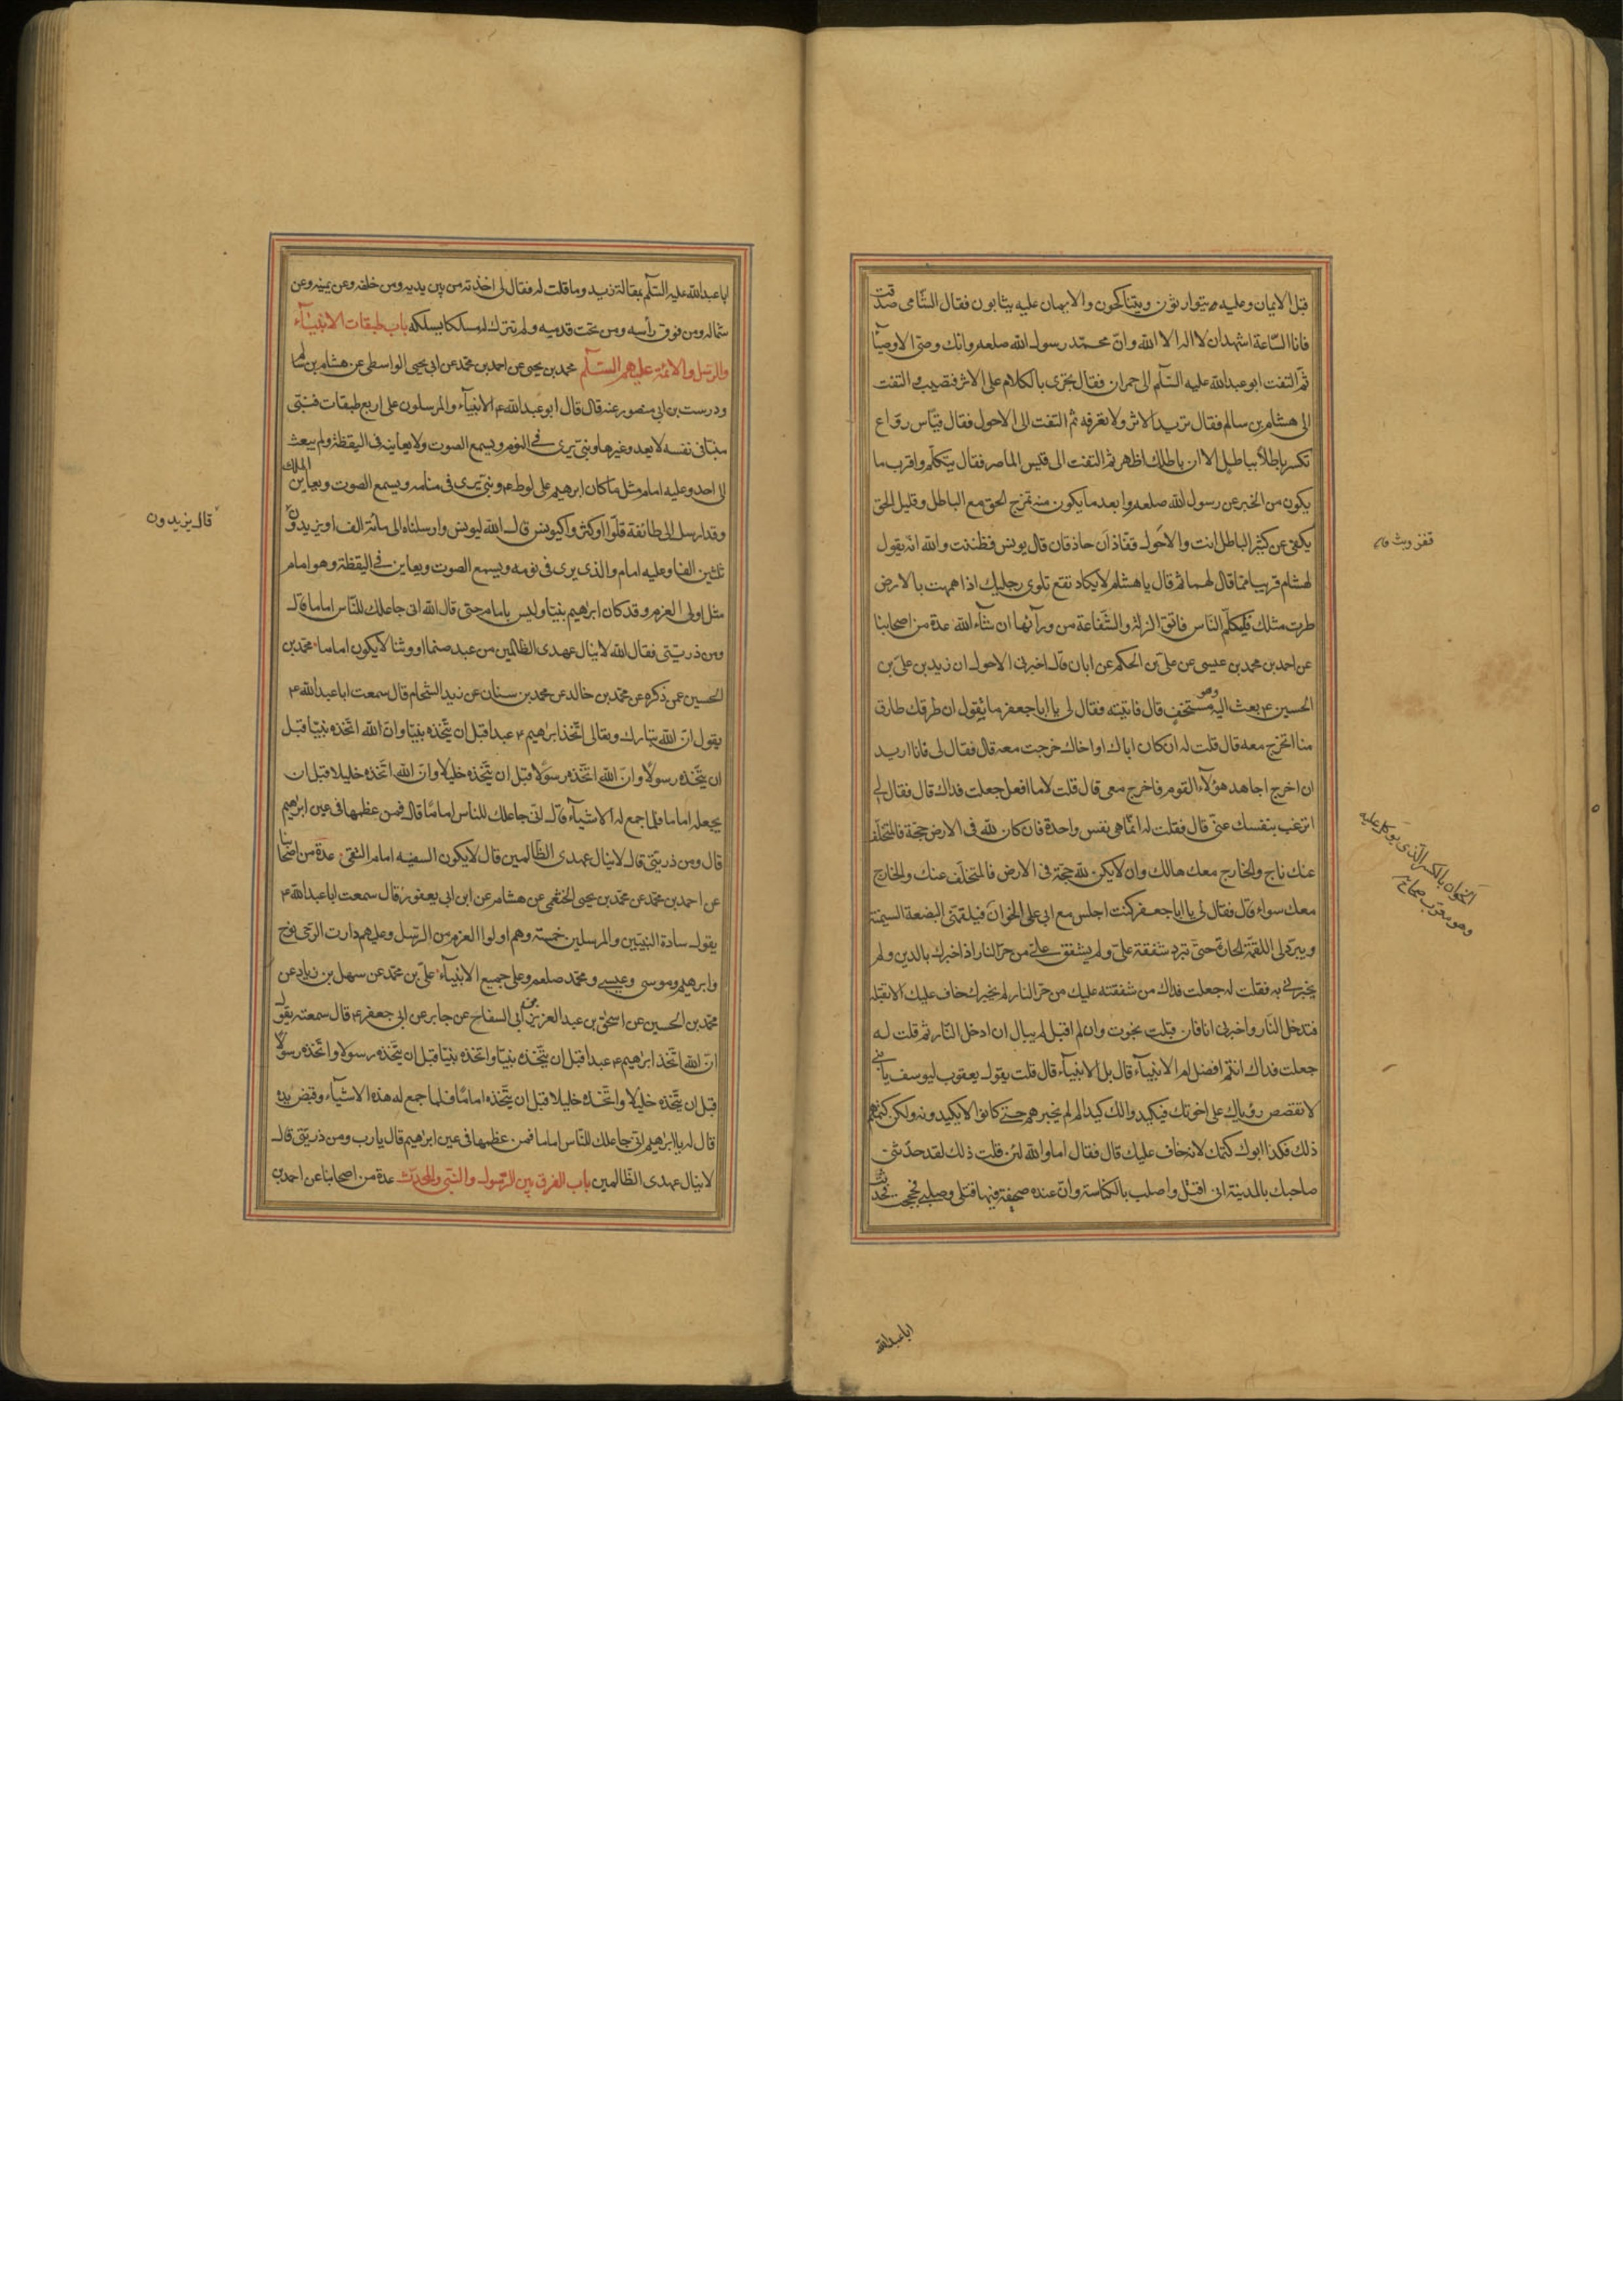 قبل الايمان وعليه يتوارثون ويتناكحون والايمان عليه يثابون فقال الشامى صدقت
فانا الساعة اشهد ان لا اله الا الله وان محمد رسول الله صلعم وانك وصى الاوصيآء
ثم التفت ابو عبدالله عليه السلم الى حمران فقال تجرى بالكلام على الاثر فتصيب والتفت
الى هشام بن سالم فقال تريد الاثر ولا تعرفه ثم التفت الى الاحول فقال قياس رواع
تكسر باطلا بباطل الا ان باطلك اظهر ثم التفت الى قيس الماصر فقال يتكلم واقرب ما
يكون من الخبر عن رسول الله صلعم وابعد ما يكون منه تمزج الحق مع الباطل وقليل الحق
يكفى عن كثير الباطل انت والاحول قفاذان حاذقان قال يونس فظننت والله انه يقول
لهشام قريبا مما قال لهما ثم قال يا هشام لا يكاد تقع تلوى رجليك اذا هممت بالارض
طرت مثلك فليكلم الناس فاتق الزلة والشفاعة من ورآئها ان شآء الله عدة من اصحابنا
عن احمد بن محمد بن عيسى عن على بن الحكم عن ابان قال اخبرنى الاحول ان زيد بن على بن
الحسين ع بعث اليه وهو مستخف قال فاتيته فقال لى يا ابا جعفر ما تقول ان طرقك طارق
منا اتخرج معه قال قلت له ان كان اباك او اخاك خرجت معه قال فقال لى فانا اريد
ان اخرج اجاهد هؤلآء القوم فاخرج معى قال قلت لا ما افعل جعلت فداك قال فقال لى
اترغب بنفسك عنى قال فقلت له انما هى نفس واحدة فان كان لله فى الارض حجة فالمتخلف
عنك ناج والخارج معك هالك وان لا يكن لله حجة فى الارض فالمتخلف عنك والخارج
معك سواء قال فقال لى يا ابا جعفر كنت اجلس مع ابى على الخوان فيلقمنى البضعة السمينة
ويبرد لى اللقمة الحارة حتى تبرد شفقة على ولم يشفق على من حر النار اذا اخبرك بالدين ولم
يخبرنى به فقلت له جعلت فداك من شفقته عليك من حر النار لم يخبرك خاف عليك الا تقبله
فتدخل النار واخبرنى انا فان قبلت نجوت وان لم اقبل لم يبال ان ادخل النار ثم قلت له
جعلت فداك انتم افضل ام الانبيآء قال بل الانبيآء قال قلت يقول يعقوب ليوسف يا بنى
لا تقصص رؤياك على اخوتك فيكيدوا لك كيدا لم لم يخبرهم حتى كانوا لا يكيدونه ولكن كتمهم
ذلك فكذا ابوك كتمك لانه خاف عليك قال فقال اما والله لئن قلت ذلك لقد حدثنى
صاحبك بالمدينة انى اقتل واصلب بالكناسة وان عنده صحيفة فيها قتلى وصلبى فحججت فحدثت
الخوان بالكسر الذى يوكل عليه
وهو معرب صحاح
ابا عبدالله
ابا عبدالله عليه السلم بمقالة زيد وما قلت له فقال لى اخذته من بين يديه ومن خلفه وعن يمينه وعن
شماله ومن فوق رأسه ومن تحت قدميه ولم تترك له مسلكا يسلكه باب طبقات الانبيآء
والرسل والائمة عليهم السلم محمد بن يحيى عن احمد بن محمد عن ابى يحيى الواسطى عن هشام بن سالم
ودرست بن ابى منصور عنه قال قال ابو عبدالله ع الانبيآء والمرسلون على اربع طبقات فنبى
منبا فى نفسه لا يعدو غيرها ونبى يرى فى النوم ويسمع الصوت ولا يعاينه فى اليقظة ولم يبعث
الى احد وعليه امام مثل ما كان ابرهيم على لوط ع ونبى يرى فى منامه ويسمع الصوت ويعاين الملك
وقد ارسل الى طائفة قلوا او كثروا كيونس قال الله ليونس وارسلناه الى مائة الف او يزيدون
ثلثين الفا وعليه امام والذى يرى فى نومه ويسمع الصوت ويعاين فى اليقظة وهو امام
مثل اولى العزم وقد كان ابرهيم نبيا وليس بامام حتى قال الله انى جاعلك للناس اماما قال
ومن ذريتى فقال الله لا ينال عهدى الظالمين من عبد صنما او وثنا لا يكون اماما محمد بن
الحسين عمن ذكره عن محمد بن خالد عن محمد بن سنان عن زيد الشحام قال سمعت ابا عبدالله ع
يقول ان الله تبارك وتعالى اتخذ ابرهيم ع عبدا قبل ان يتخذه نبيا وان الله اتخذه نبيا قبل
ان يتخذه رسولا وان الله اتخذه رسولا قبل ان يتخذه خليلا وان الله اتخذه خليلا قبل ان
يجعله اماما فلما جمع له الاشيآء قال انى جاعلك للناس اماما قال فمن عظمها فى عين ابرهيم
قال ومن ذريتى قال لا ينال عهدى الظالمين قال لا يكون السفيه امام التقى عدة من اصحابنا
عن احمد بن محمد عن محمد بن يحيى الخثعمى عن هشام عن ابن ابى يعفور قال سمعت ابا عبدالله ع
يقول سادة النبيين والمرسلين خمسة وهم اولوا العزم من الرسل وعليهم دارت الرحى نوح
وابرهيم وموسى وعيسى ومحمد صلعم وعلى جميع الانبيآء على بن محمد عن سهل بن زياد عن
محمد بن الحسين عن اسحق بن عبد العزيز بن ابى السفاح عن جابر عن ابى جعفر ع قال سمعته يقول
ان الله اتخذ ابرهيم ع عبدا قبل ان يتخذه نبيا واتخذه نبيا قبل ان يتخذه رسولا واتخذه رسولا
قبل ان يتخذه خليلا واتخذه خليلا قبل ان يتخذه اماما فلما جمع له هذه الاشيآء وقبض يده
قال له يا ابرهيم انى جاعلك للناس اماما فمن عظمها فى عين ابرهيم قال يا رب ومن ذريتى قال
لا ينال عهدى الظالمين باب الفرق بين الرسول والنبى والمحدث عدة من اصحابنا عن احمد بن
قال يزيدون